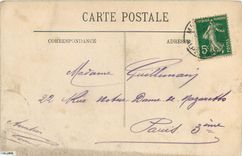 CARTE POSTALE
CORRESPONDANCE
ADRESSE
Madame Guillemain
22 Rue Notre Dame de Nazareth
Paris 3ème